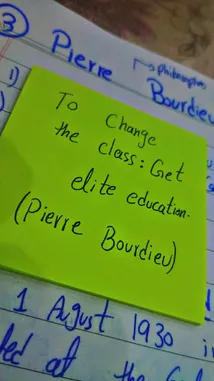 3
Pierre Bourdieu
philosopher
1)
To Change
the class: Get
elite education.
(Pierre Bourdieu)
1 August 1930 in
at the